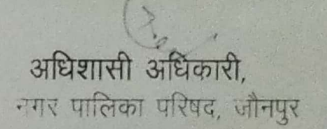 अधिशासी अधिकारी,
नगर पालिका परिषद, जौनपुर